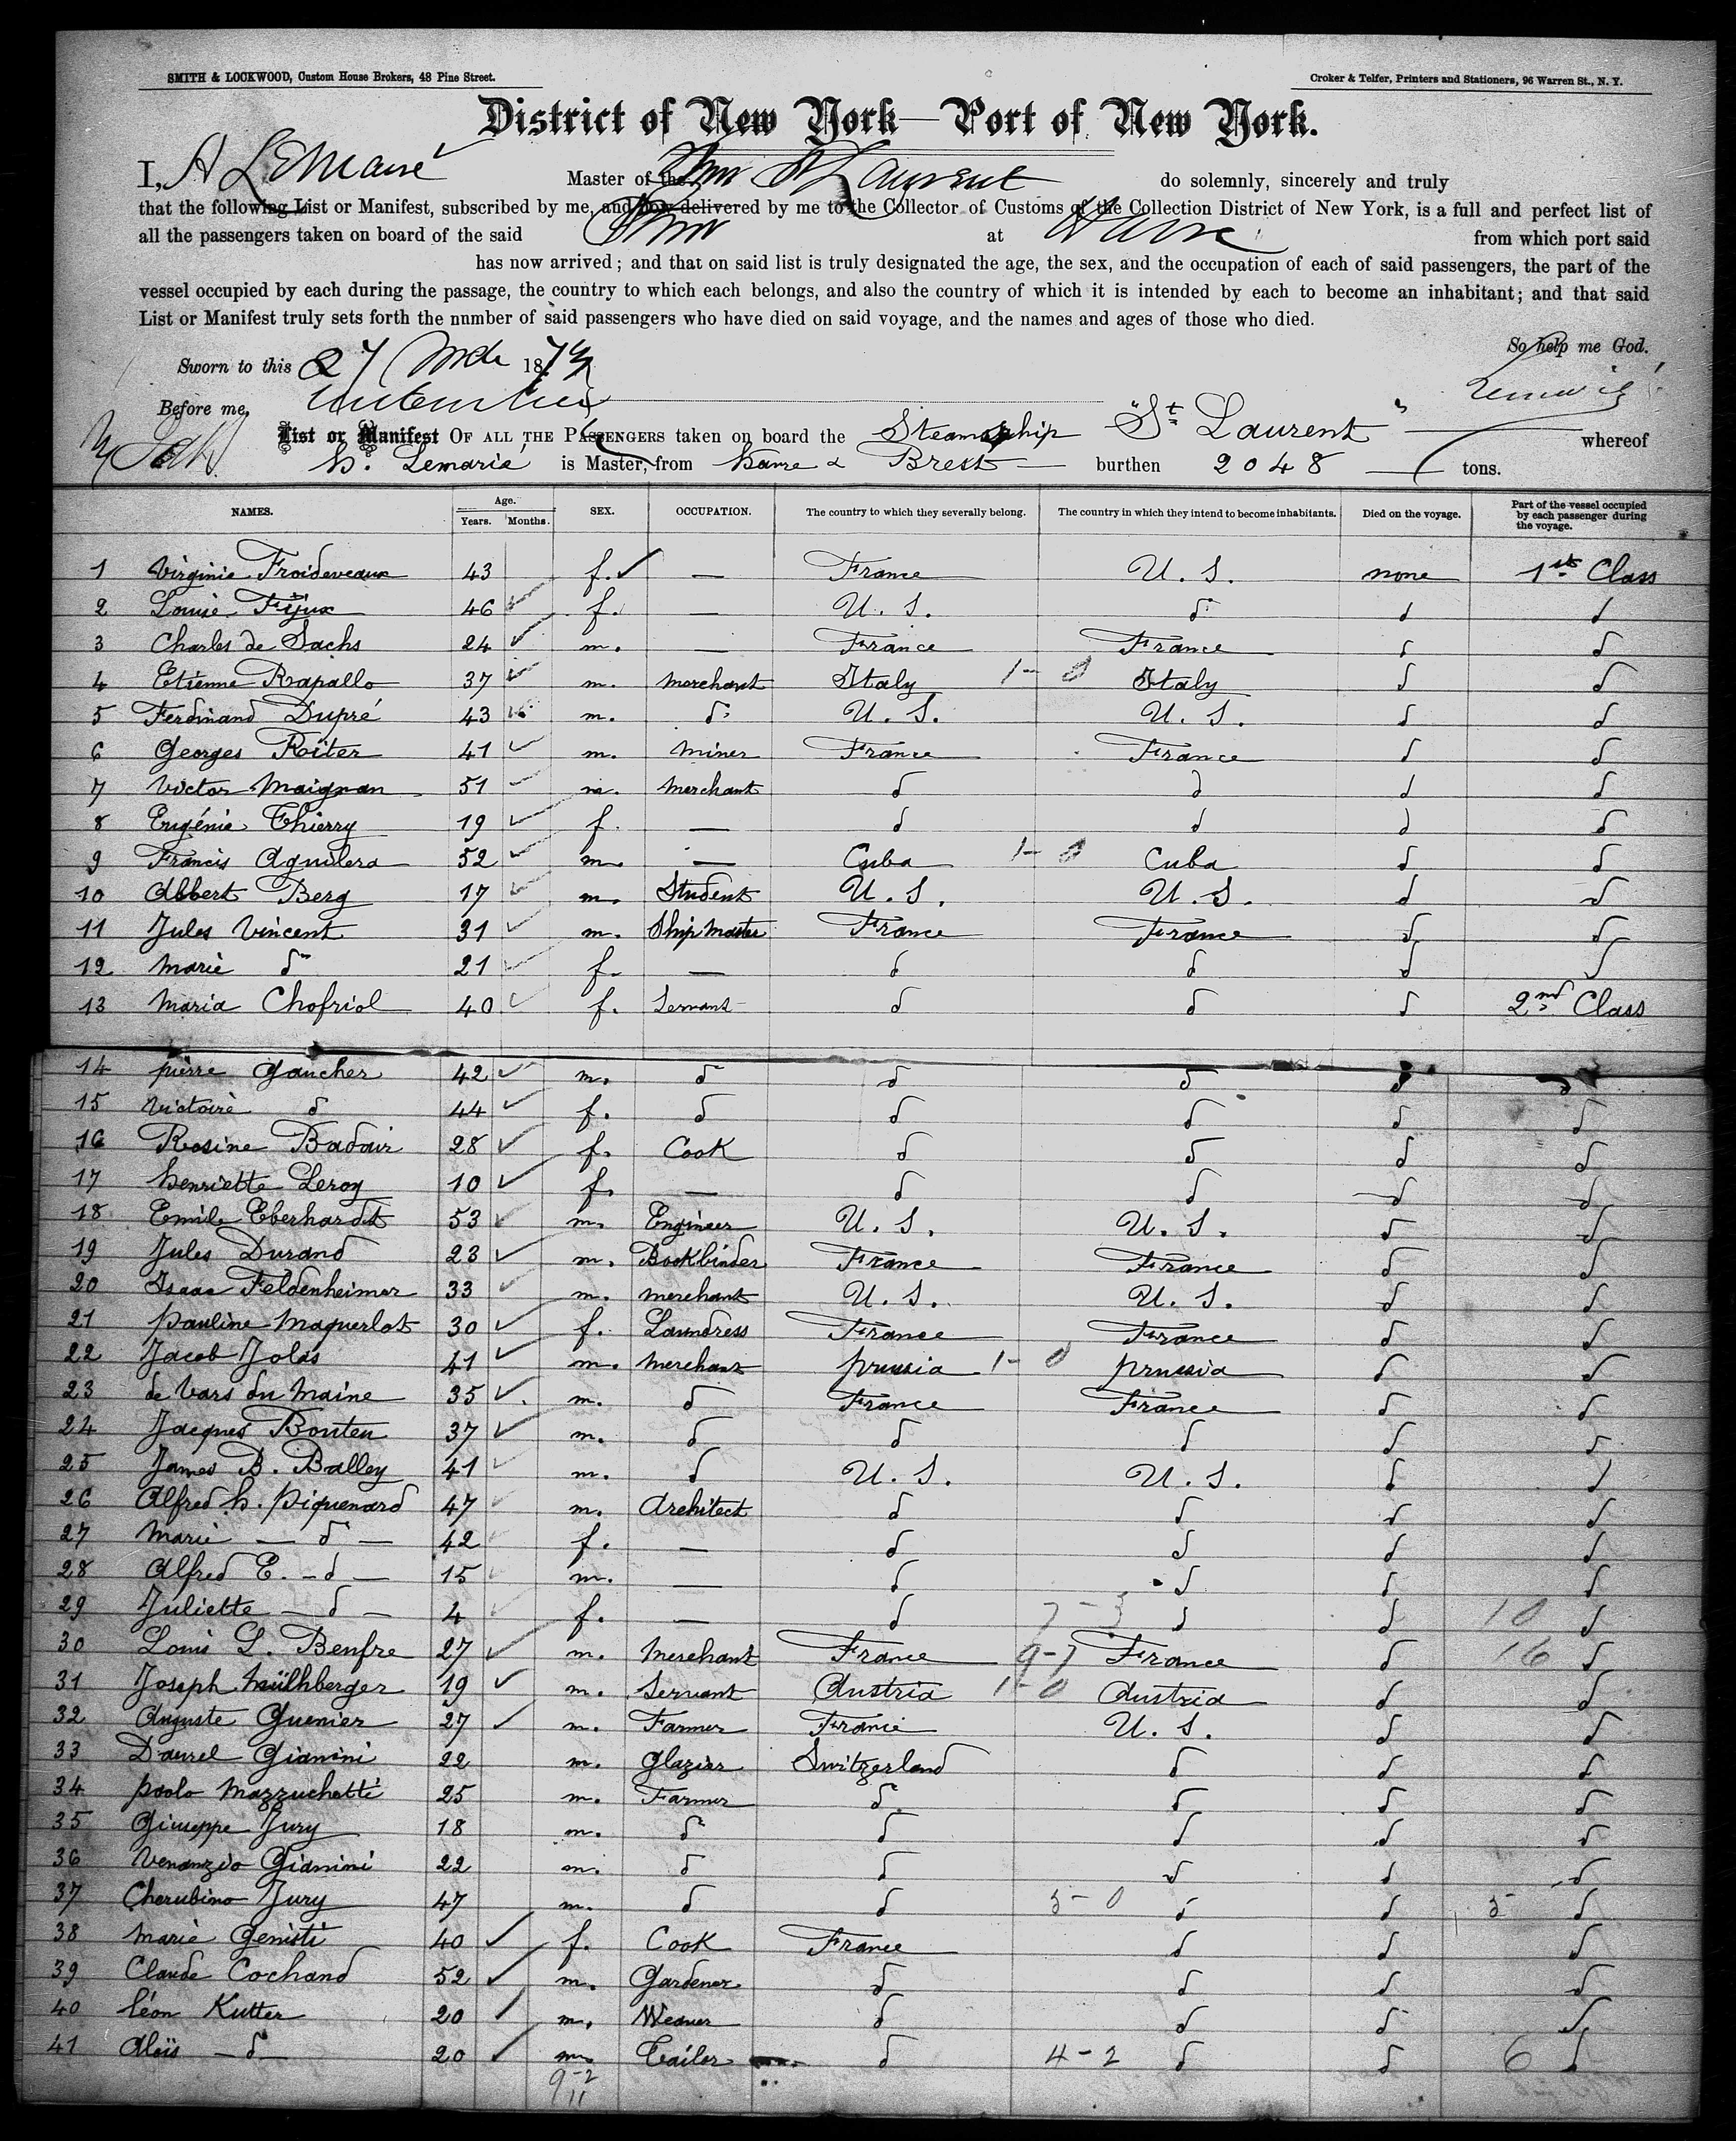 SMITH & LOCKWOOD, Custom House Brokers, 48 Pine Street. Croker & Telfer, Printers and Stationers, 96 Warren St., N. Y.
District of New York—Port of New York.
I, A Lemarié Master of the Stmr St Laurent do solemnly, sincerely and truly
that the following List or Manifest, subscribed by me, and now delivered by me to the Collector of Customs of the Collection District of New York, is a full and perfect list of
all the passengers taken on board of the said Stmr at Havre from which port said
has now arrived; and that on said list is truly designated the age, the sex, and the occupation of each of said passengers, the part of the
vessel occupied by each during the passage, the country to which each belongs, and also the country of which it is intended by each to become an inhabitant; and that said
List or Manifest truly sets forth the number of said passengers who have died on said voyage, and the names and ages of those who died.
So help me God.
Sworn to this 27 187
Before me,
List or Manifest OF ALL THE PASSENGERS taken on board the Steamship "St Laurent" whereof
h. Lemarié is Master, from havre & Brest burthen 2048 tons.
NAMES. Age. Years. Months. SEX. OCCUPATION. The country to which they severally belong. The country in which they intend to become inhabitants. Died on the voyage. Part of the vessel occupied by each passenger during the voyage.
1 Virginie Froideveaux 43 f. — France U. S. none 1st Class
2 Louise Fijux 46 f. — U. S. d d d
3 Charles de Sachs 24 m. — France France d d
4 Etienne Rapallo 37 m. merchant Italy 1-0 Italy d d
5 Ferdinand Dupré 43 m. d U. S. U. S. d d
6 Georges Roïter 41 m. miner France France d d
7 Victor Maignan 51 m. merchant d d d d
8 Eugénie Thierry 19 f. — d d d d
9 Francis Aguilera 52 m. — Cuba 1-0 Cuba d d
10 Albert Berg 17 m. Student U. S. U. S. d d
11 Jules Vincent 31 m. Ship master France France d d
12 marie d 21 f. — d d d d
13 maria Chofriol 40 f. Servant d d d 2nd Class
14 pierre Gaucher 42 m. d d d d d
15 Victoire d 44 f. d d d d d
16 Rosine Badoir 28 f. Cook d d d d
17 henriette Leroy 10 f. — d d d d
18 Emile Eberhardt 53 m. Engineer U. S. U. S. d d
19 Jules Durand 23 m. Bookbinder France France d d
20 Isaac Feldenheimer 33 m. merchant U. S. U. S. d d
21 pauline maquerlot 30 f. Laundress France France d d
22 Jacob Jolas 41 m. merchant prussia 1-0 prussia d d
23 de Vars du maine 35 m. d France France d d
24 Jacques Bonten 37 m. d d d d d
25 James B. Balley 41 m. d U. S. U. S. d d
26 Alfred h. piquenard 47 m. Architect d d d d
27 marie — d — 42 f. — d d d d
28 Alfred E. — d — 15 m. — d d d d
29 Juliette — d — 4 f. — d 7-3 d d 10 d
30 Louis L. Benfre 27 m. merchant France 9-7 France d 16 d
31 Joseph mülhberger 19 m. Servant Austria 1-0 Austria d d
32 Auguste Guenier 27 m. Farmer France U. S. d d
33 Daurel Gianini 22 m. Glazier Switzerland d d d
34 paolo mazzuchetti 25 m. Farmer d d d d
35 Giuseppe Jury 18 m. d d d d d
36 Venanzio Gianini 22 m. d d d d d
37 Cherubino Jury 47 m. d d 5-0 d d 5 d
38 marie Genisti 40 f. Cook France d d d
39 Claude Cochand 52 m. Gardener d d d d
40 léon Kutter 20 m. Weaver d d d d
41 Aloïs — d — 20 m. Tailor d 4-2 d d 6 d
9-2
11